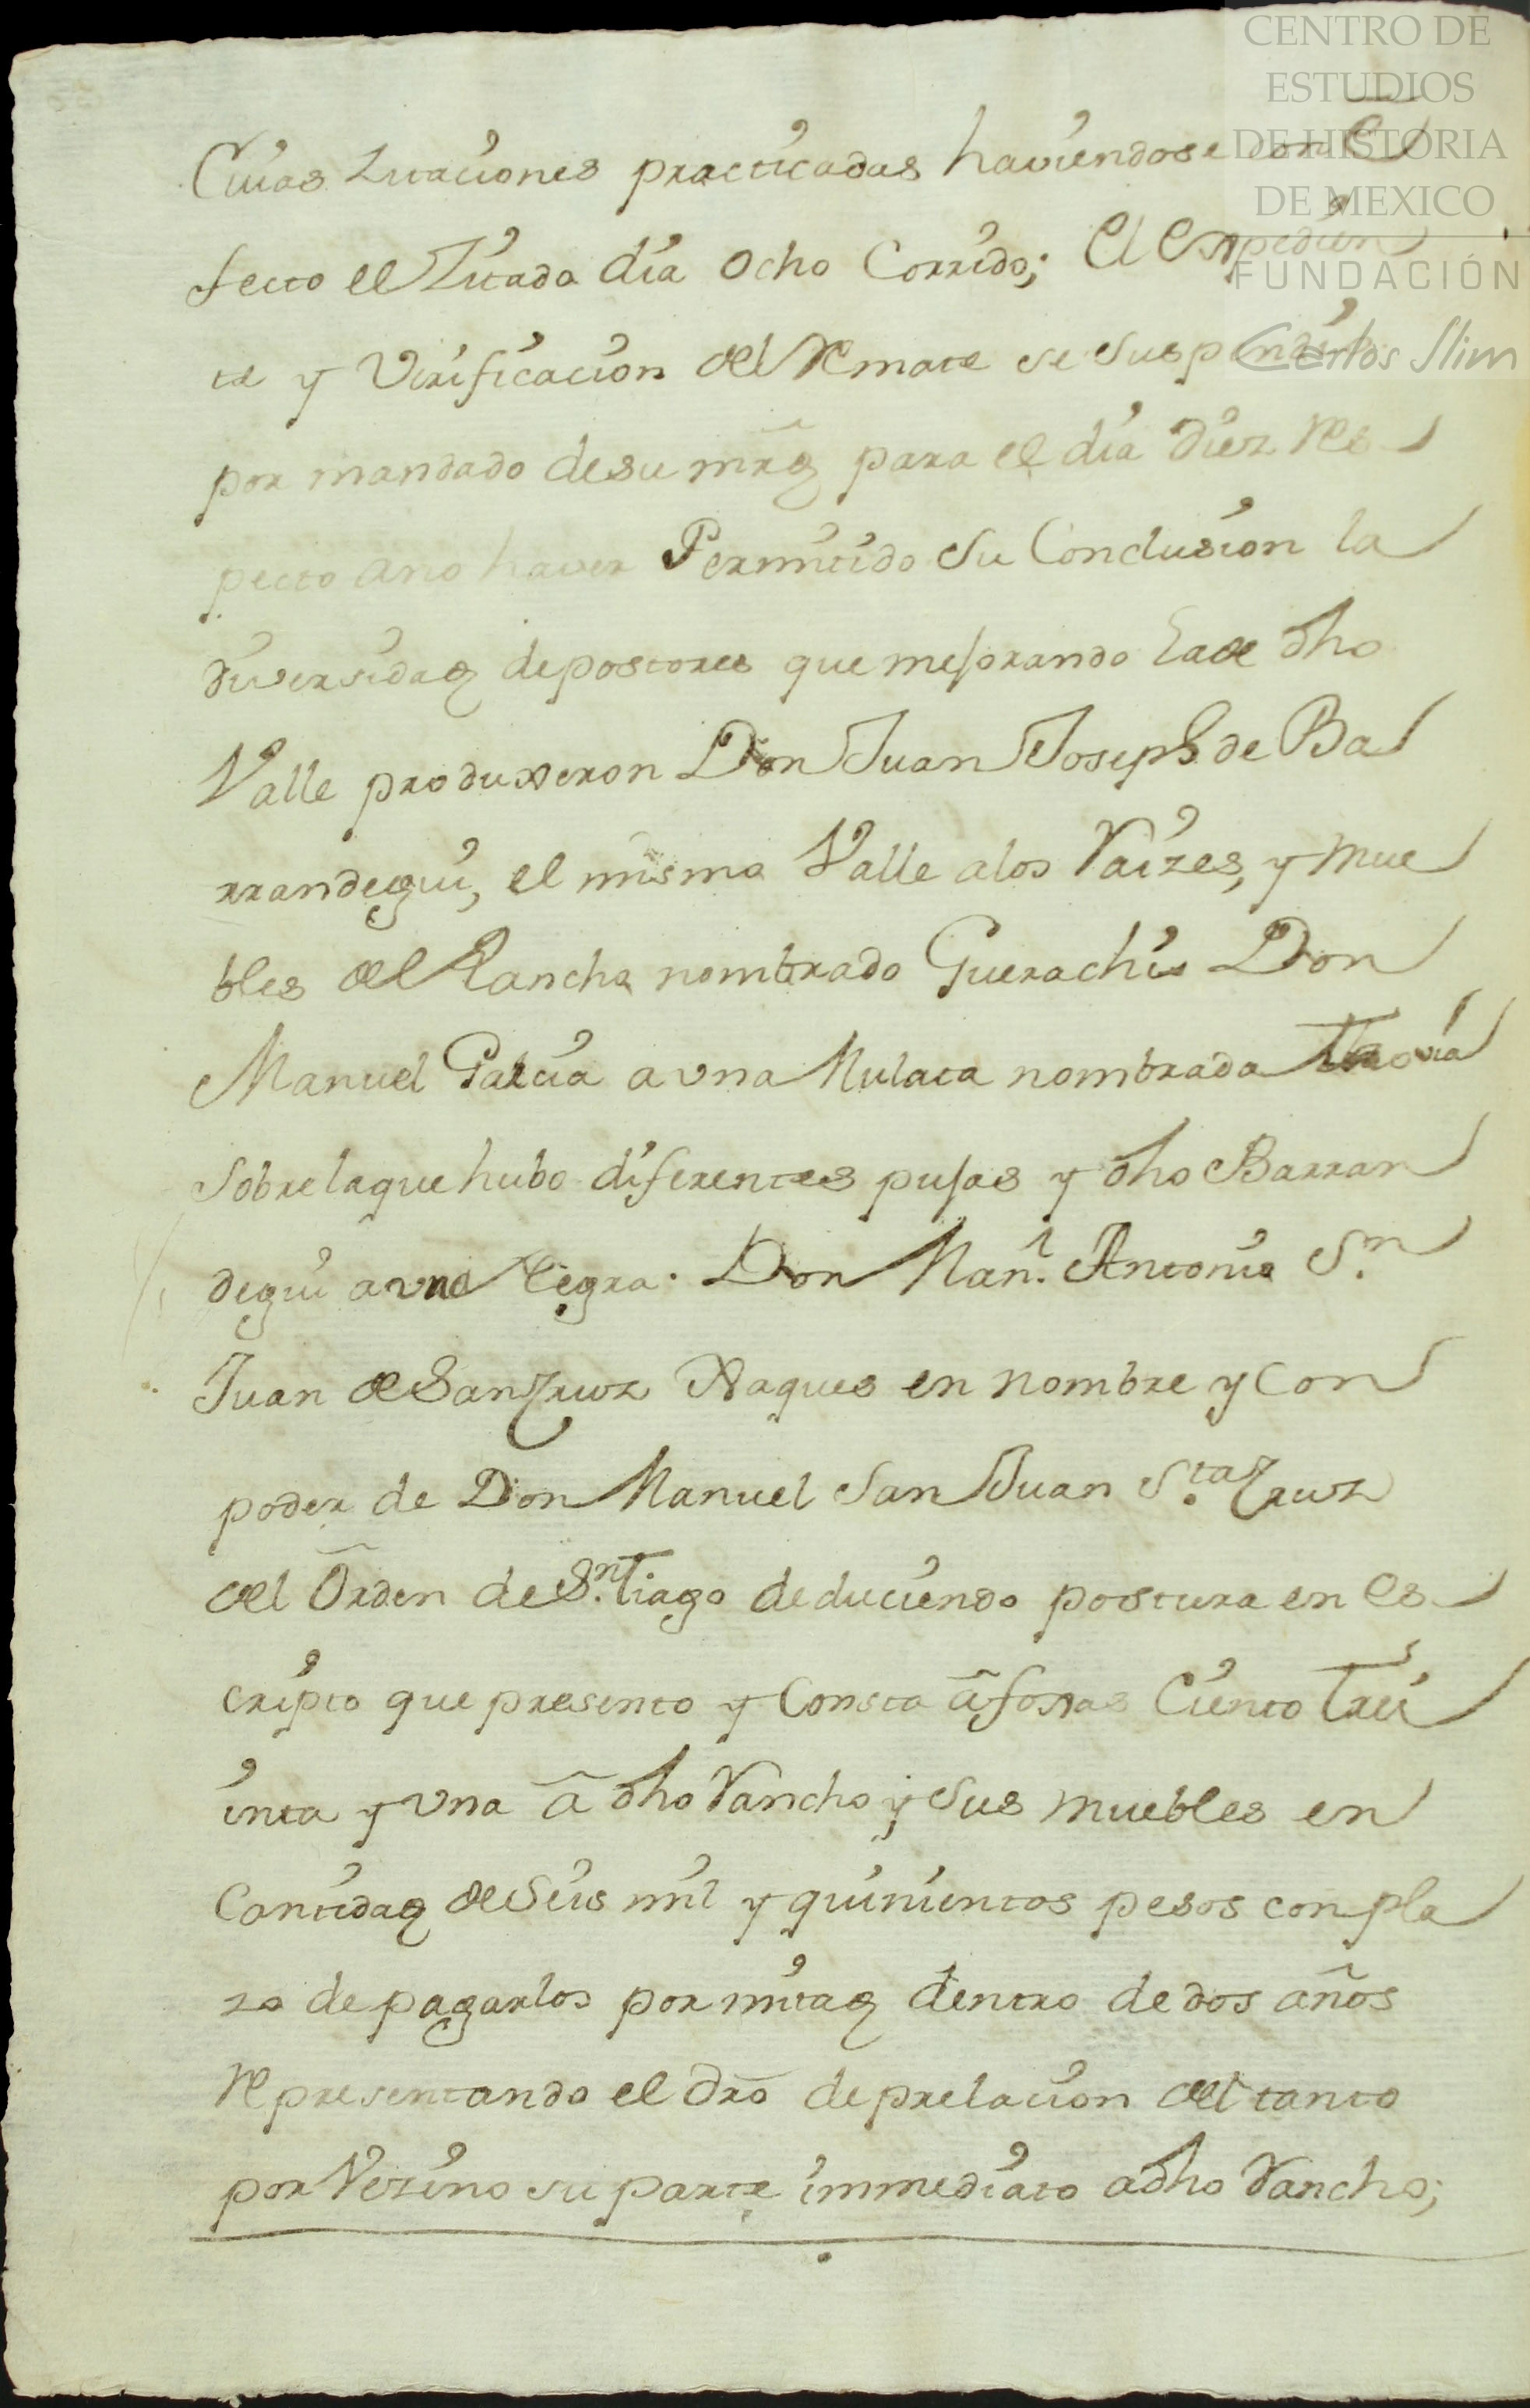 CENTRO DE
ESTUDIOS
DE HISTORIA
DE MEXICO
FUNDACIÓN
Carlos Slim
Cuias Zitaciones practicadas haviendose con E
fecto el Zitado dia ocho Corrido; El Expedien
te y Verificacion del Remate se suspendio
por mandado de su mrd para el dia Diez Res
pecto ano haver Permitido su Conclusion la
diversidad de postores que mejorando la de dho
Valle produxeron Don Juan Joseph de Ba
rrandegui, el mismo Valle a los Raizes, y mue
bles del Rancho nombrado Guerachis Don
Manuel Garcia a vna Mulata nombrada
Sobre la que hubo diferentes pujas y dho Barran
degui a vna Negra. Don Man.l Antonio S.n
Juan de Santa Cruz Xaques en nombre y con
poder de Don Manuel San Juan S.ta Cruz
del Orden de S.nTiago deduciendo postura en es
cripto que presento y consta â foxas Ciento trei
inta y vna â dho Rancho y sus muebles en
Cantidad de Seis mil y quinientos pesos con pla
zo de pagarlos por mitad dentro de dos años
Representando el dro de prelacion del tanto
por Vezino su parte immediato a dho Rancho;